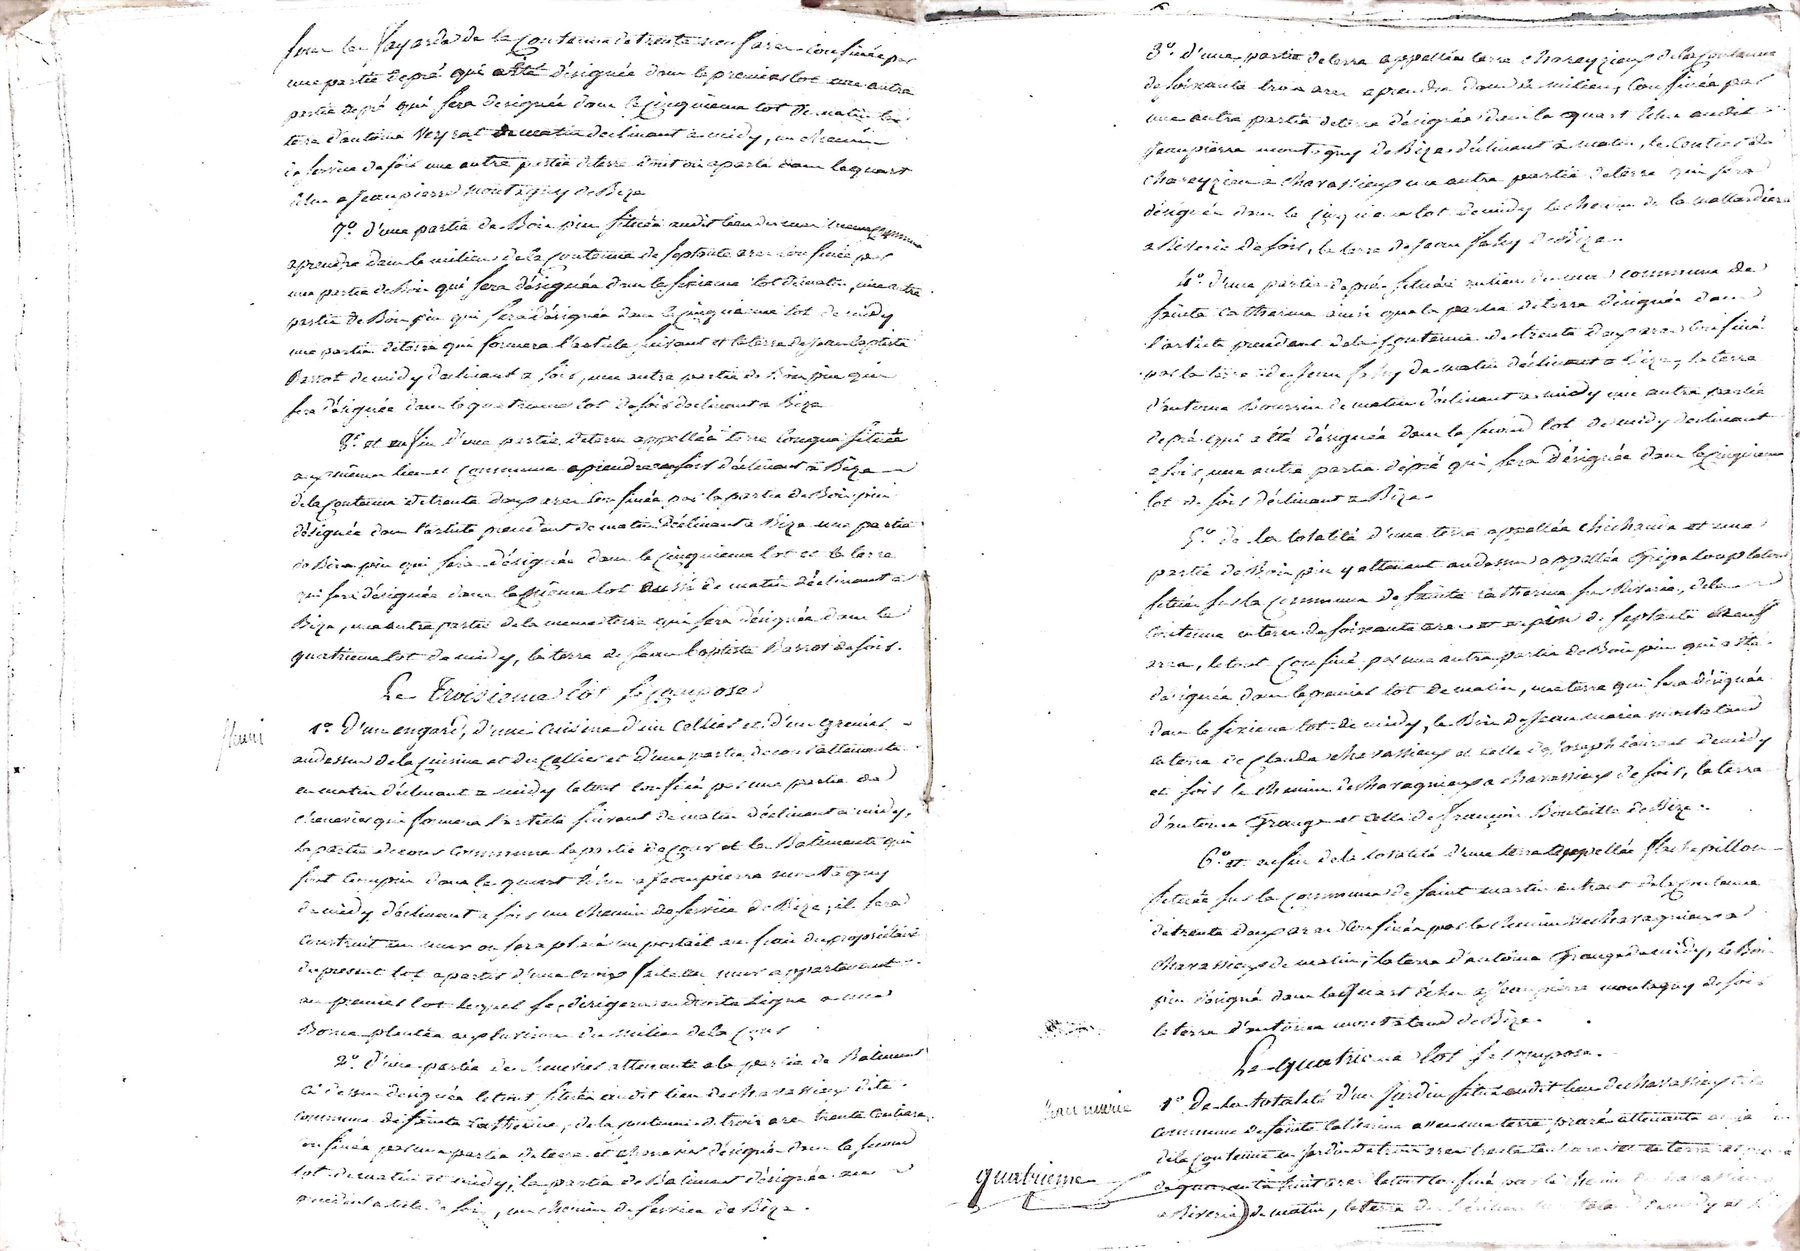 sur les Vayarde de la Contenue de trente neuf ares confinée par
une partie de pré qui a été désignée dans le premier lot une autre
partie de pré qui sera designée dans le cinquieme lot de matin la
terre d'antoine Veyrat de matin declinant a midy, un chemin
de service de soir une autre partie de terre dont on a parlé dans le quart
échu a Jean pierre montagny de Bize
7º d'une partie de Bois pin située audit lieu du même commune
a prendre dans le milieu de la Contenue de septante ares confinée par
une partie de Bois qui sera désignée dans le sixieme lot de matin, une autre
partie de Bois pin qui sera désignée dans le cinquieme lot de midy
une partie de terre qui formera l'article suivant et la terre de Jean baptiste
Barrot de midy declinant a soir, une autre partie de Bois pin qui
sera désignée dans le quatrieme lot de soir declinant a Bize
8º et enfin d'une partie de terre appellée terre longue située
aux mêmes lieu et commune a prendre au soir déclinant a Bize
de la Contenue de trente deux ares confinée par la partie de Bois pin
désignée dans l'article precedent de matin declinant a Bize une partie
de Bois pin qui sera désignée dans le cinquieme lot et la terre
qui sera désignée dans le même lot aussi de matin déclinant a
Bize, une autre partie de la meme terre qui sera désignée dans le
quatrieme lot de midy, la terre de Jean baptiste Barrot de soir.
Le Troisieme lot se compose
1º d'un engard, d'une Cuisine d'un Cellier et d'un grenier
au dessus de la Cuisine et du Cellier et d'une partie de cour attenante
en matin déclinant a midy le tout confiné par une partie de
chenevier qui formera l'article suivant de matin déclinant a midy,
la partie de cour commune la partie de cour et les Batiments qui
sont compris dans le quart échu a Jean pierre montagny
de midy déclinant a soir un chemin de service de Bize, il sera
construit un mur ou sera placé un portail au frais du propriétaire
du present lot a partir d'une croix faite au mur appartenant
au premier lot lequel se dirigera en droite Ligne a une
Borne plantée au milieu de la Cour
2º d'une partie de chenevier attenante a la partie de Batiment
ci dessus designée le tout située audit lieu de charassieux dite
commune de sainte Catherine, de la contenue de trois ares trente centiares
confinée par une partie de terre et chenevier désignée dans le second
lot de matin et midy, la partie de Batiment désignée au
precedent article de soir, un chemin de service de Bize.
3º d'une partie de terre appellée terre chareyzieux de la Contenue
de soixante trois ares a prendre dans le milieu, Confinée par
une autre partie de terre désignée dans le quart échu audit
Jean pierre montagny de Bize déclinant a matin, le Sentier de
chareyzieu a charassieux une autre partie de terre qui sera
désignée dans le cinquieme lot de midy le chemin de la mallardiere
a Riverie de soir, la terre de Jean faby de Bize.
4º d'une partie de pré située au lieu du commune de
sainte catherine ainsi que la partie de terre désignée dans
l'article precedent de la Contenue de trente deux ares Confiné
par la terre de Jean faby de matin déclinant a Bize, la terre
d'antoine Boursin de matin déclinant a midy une autre partie
de pré qui a été désignée dans le second lot de midy declinant
a soir, une autre partie de pré qui sera désignée dans le cinquieme
lot de soir déclinant a Bize.
5º de la totalité d'une terre appellée chichauda et une
partie de Bois pin y attenant au dessus appellée Gripaloup le tout
située sur la Commune de sainte Catherine sur Riverie, de la
Contenue en terre de soixante ares et en pin de septante neuf
ares, le tout Confiné par une autre partie de Bois pin qui a été
designée dans le premier lot de matin, une terre qui sera désignée
dans le sixieme lot de midy, le Bois de Jean marie montaland
la terre de Claude charassieux et celle de Joseph laurent de midy
et soir le chemin de charagnieux a charassieux de soir, la terre
d'antoine Grange et celle de françois Bouteille de Bize.
6º et enfin de la totalité d'une terre appellée Plat papillon
située sur la Commune de saint martin en haut de la Contenue
de trente deux ares confinée par le chemin de charagnieux a
charassieux de matin, la terre d'antoine Grange de midy, le Bois
pin désigné dans le quart échu a Jean pierre montagny de soir
la terre d'antoine montaland de Bize.
Le quatrieme lot se compose.
Jean marie
1º de la totalité d'un Jardin situé audit lieu de charassieux dite
commune de sainte Catherine avec une terre et pré attenante au
dite Contenue en jardin de trois ares trente centiares et en terre et pré
quatrieme
de quarante huit ares le tout confiné par le chemin de charassieux
a Riverie de matin, la terre de montaland de midy et